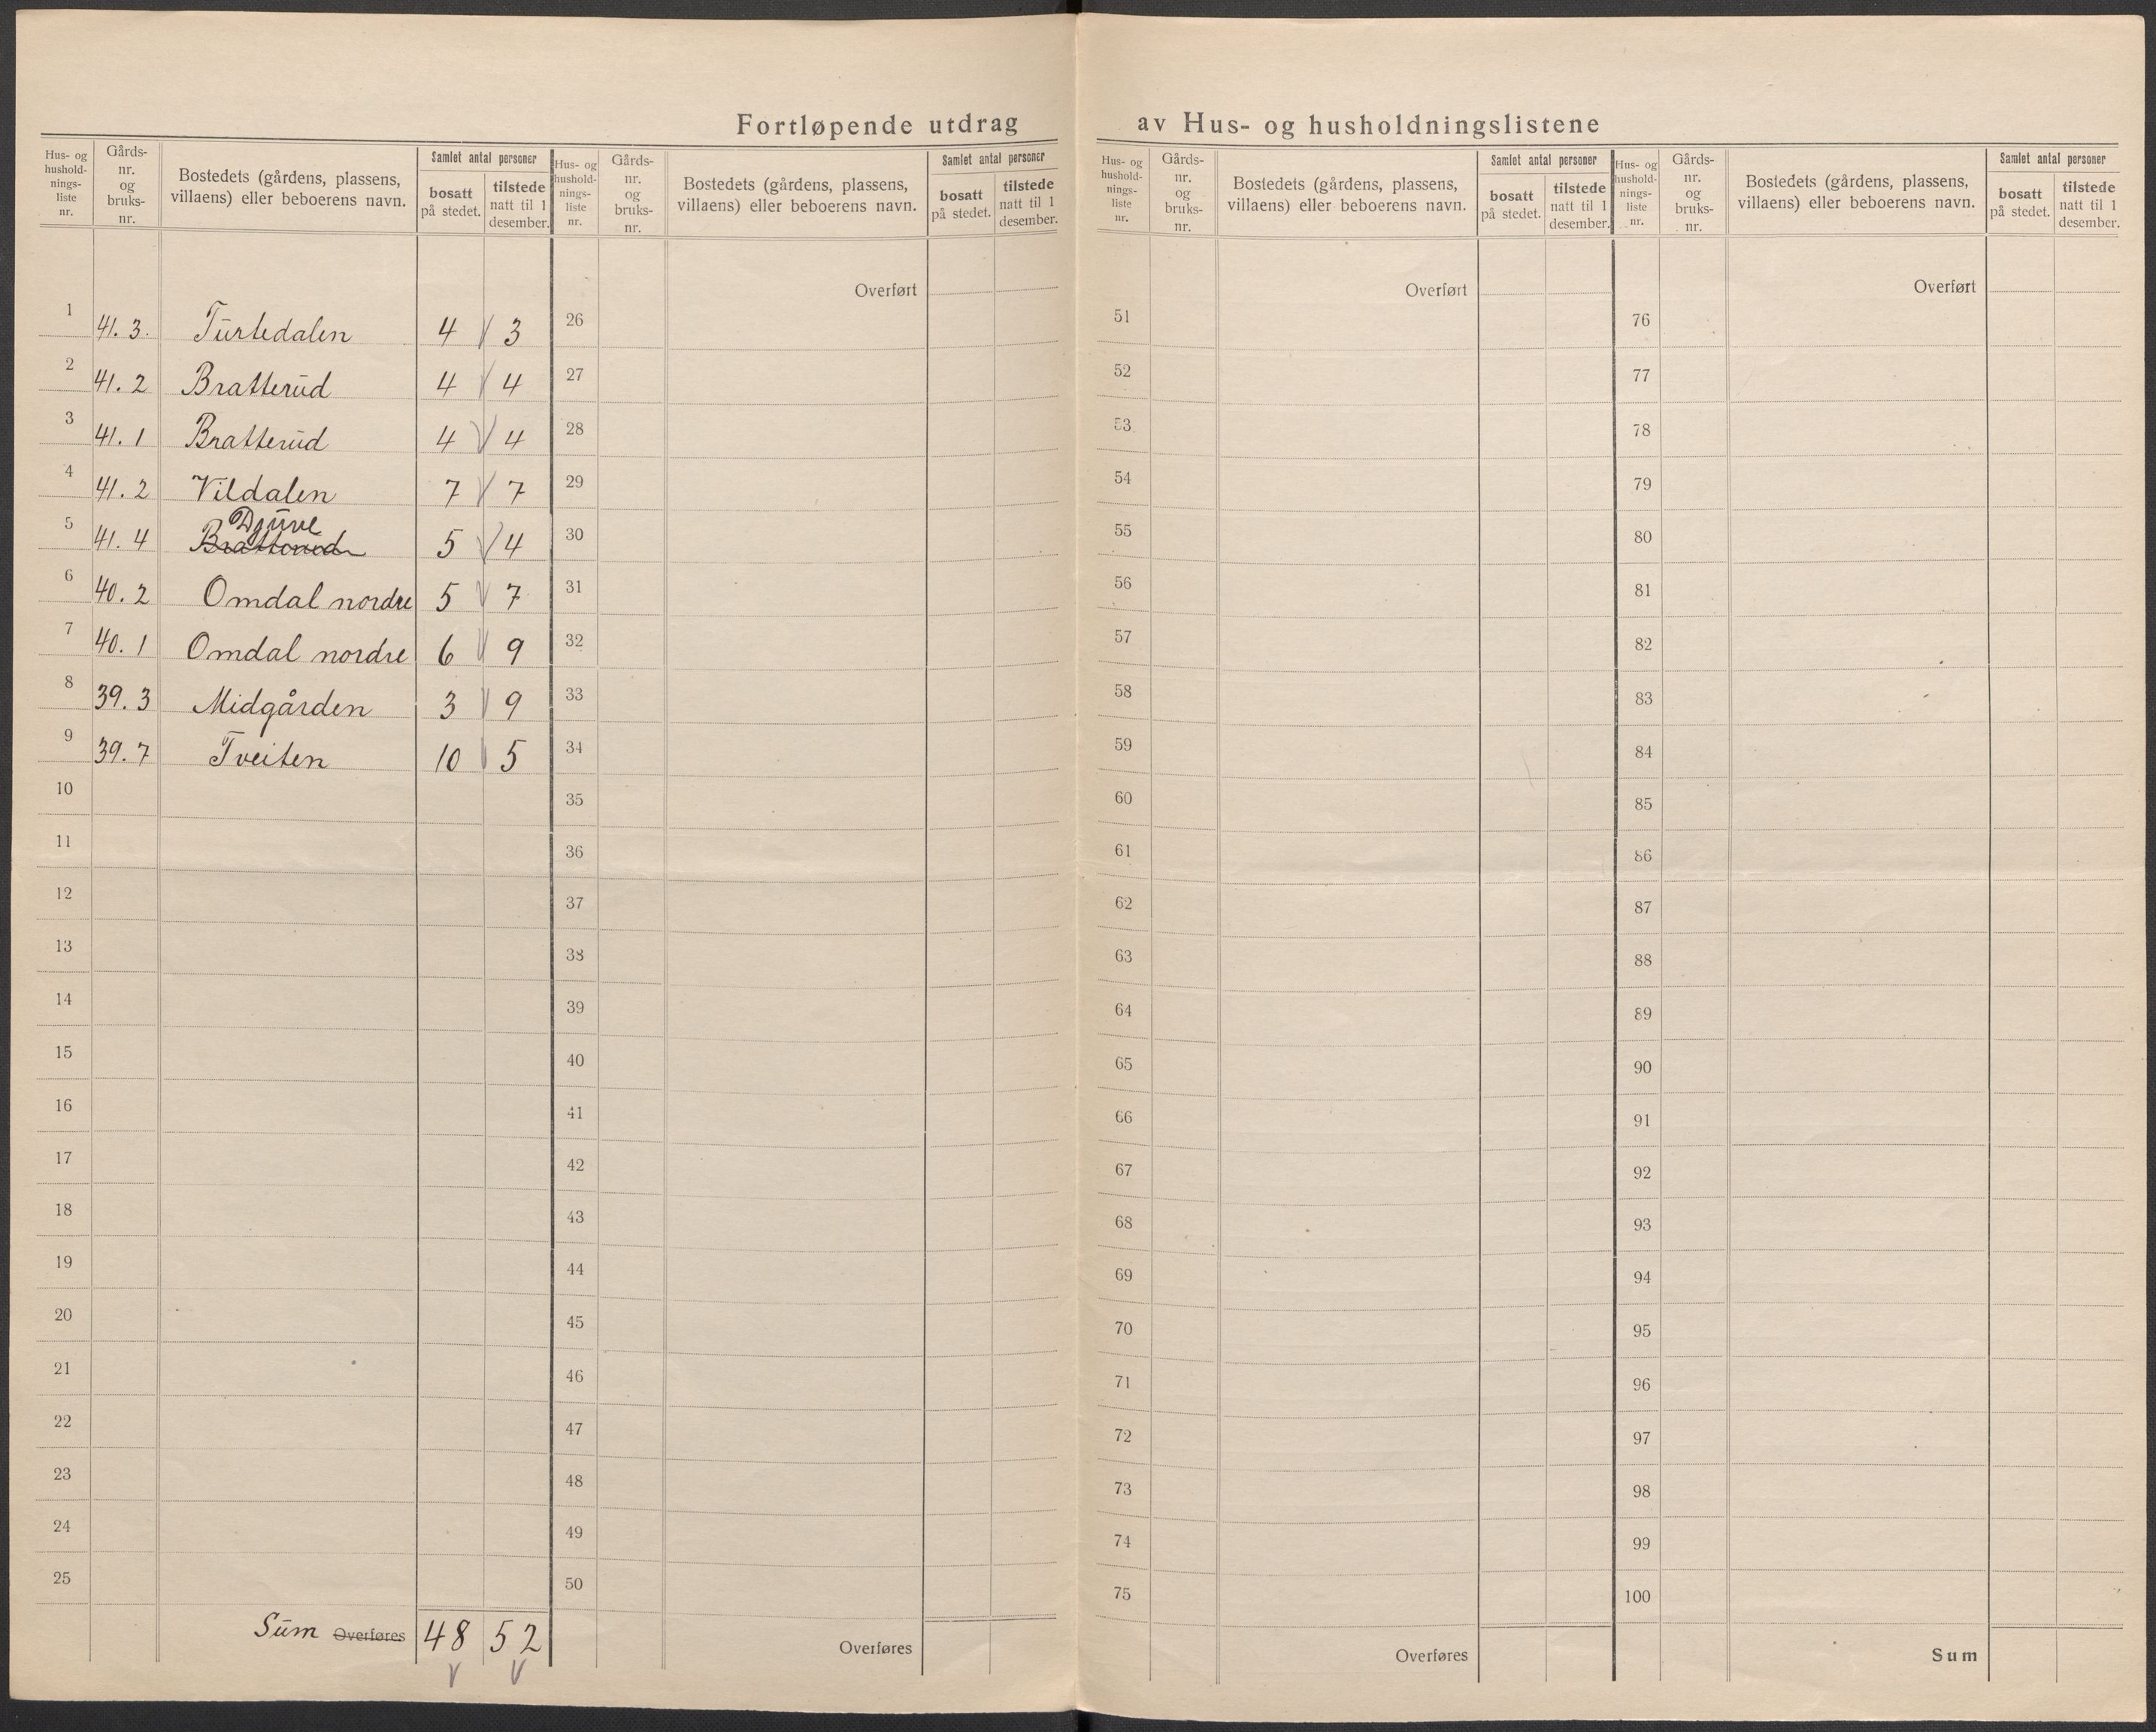 Fortløpende utdrag av Hus- og husholdningslistene
Hus- og hushold-nings-liste nr. Gårds-nr. og bruks-nr. Bostedets (gårdens, plassens, villaens) eller beboerens navn. Samlet antal personer bosatt på stedet. tilstede natt til 1 desember.
1 41. 3. Turtedalen 4 3
2 41. 2 Bratterud 4 4
3 41. 1 Bratterud 4 4
4 41. 2 Vildalen 7 7
Djuve
5 41. 4 Bratterud 5 4
6 40. 2 Omdal nordre 5 7
7 40. 1 Omdal nordre 6 9
8 39. 3 Midgården 3 9
9 39. 7 Tveiten 10 5
10
11
12
13
14
15
16
17
18
19
20
21
22
23
24
25
Sum Overføres 48 52
Hus- og hushold-nings-liste nr. Gårds-nr. og bruks-nr. Bostedets (gårdens, plassens, villaens) eller beboerens navn. Samlet antal personer bosatt på stedet. tilstede natt til 1 desember.
Overført
26
27
28
29
30
31
32
33
34
35
36
37
38
39
40
41
42
43
44
45
46
47
48
49
50
Overføres
Hus- og hushold-nings-liste nr. Gårds-nr. og bruks-nr. Bostedets (gårdens, plassens, villaens) eller beboerens navn. Samlet antal personer bosatt på stedet. tilstede natt til 1 desember.
Overført
51
52
53
54
55
56
57
58
59
60
61
62
63
64
65
66
67
68
69
70
71
72
73
74
75
Overføres
Hus- og hushold-nings-liste nr. Gårds-nr. og bruks-nr. Bostedets (gårdens, plassens, villaens) eller beboerens navn. Samlet antal personer bosatt på stedet. tilstede natt til 1 desember.
Overført
76
77
78
79
80
81
82
83
84
85
86
87
88
89
90
91
92
93
94
95
96
97
98
99
100
Sum